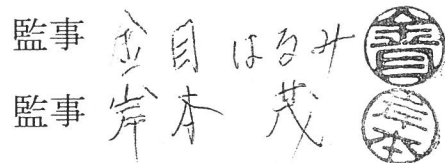 監事 金目 はるみ
監事 岸本 茂
岸本